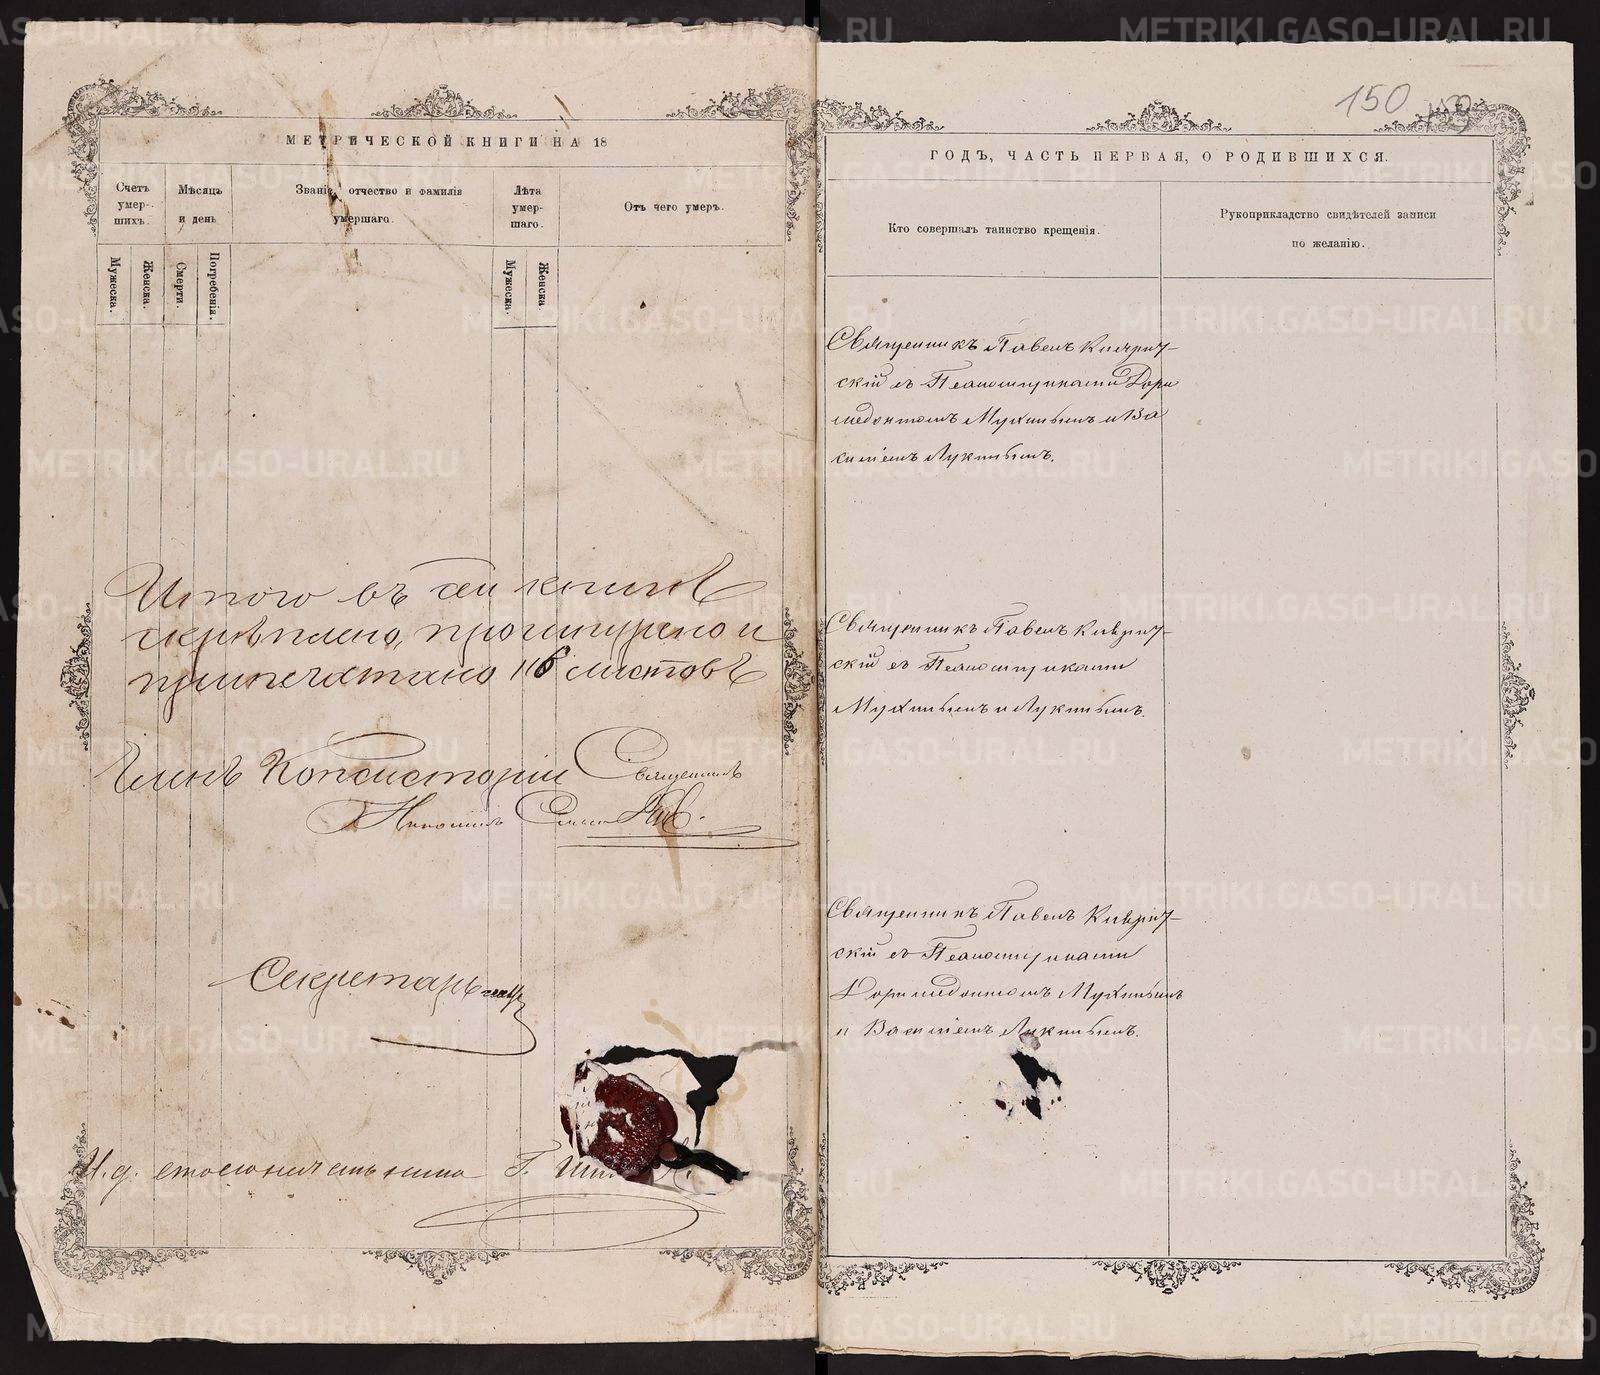 МЕТРИЧЕСКОЙ КНИГИ НА 18
Счетъ умер-шихъ.
Мѣсяцъ и день
Званіе, отчество и фамилія умершаго.
Лѣта умер-шаго.
Отъ чего умеръ.
Мужеска.
Женска.
Смерти.
Погребенія.
Мужеска.
Женска
Итого въ сей книгѣ
скрѣплено, прошнурено и
припечатано 116 листовъ
Членъ Консисторіи Священникъ
Секретарь
И. д. столоначальника Г.
150
ГОДЪ, ЧАСТЬ ПЕРВАЯ, О РОДИВШИХСЯ.
Кто совершалъ таинство крещенія.
Рукоприкладство свидѣтелей записи
по желанію.
Священникъ Павелъ
скій съ Псаломщиками Дори
медонтомъ Мухинымъ и Ва
силіемъ Лукинымъ.
Священникъ Павелъ
скій съ Псаломщиками
Мухинымъ и Лукинымъ.
Священникъ Павелъ
скій съ Псаломщиками
Доримедонтомъ Мухинымъ
и Василіемъ Лукинымъ.
METRIKI.GASO-URAL.RU